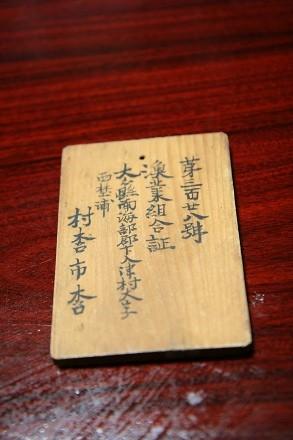 第三百廿八號
漁業組合証
大分縣南海部郡下入津村大字
西野浦
村松市松